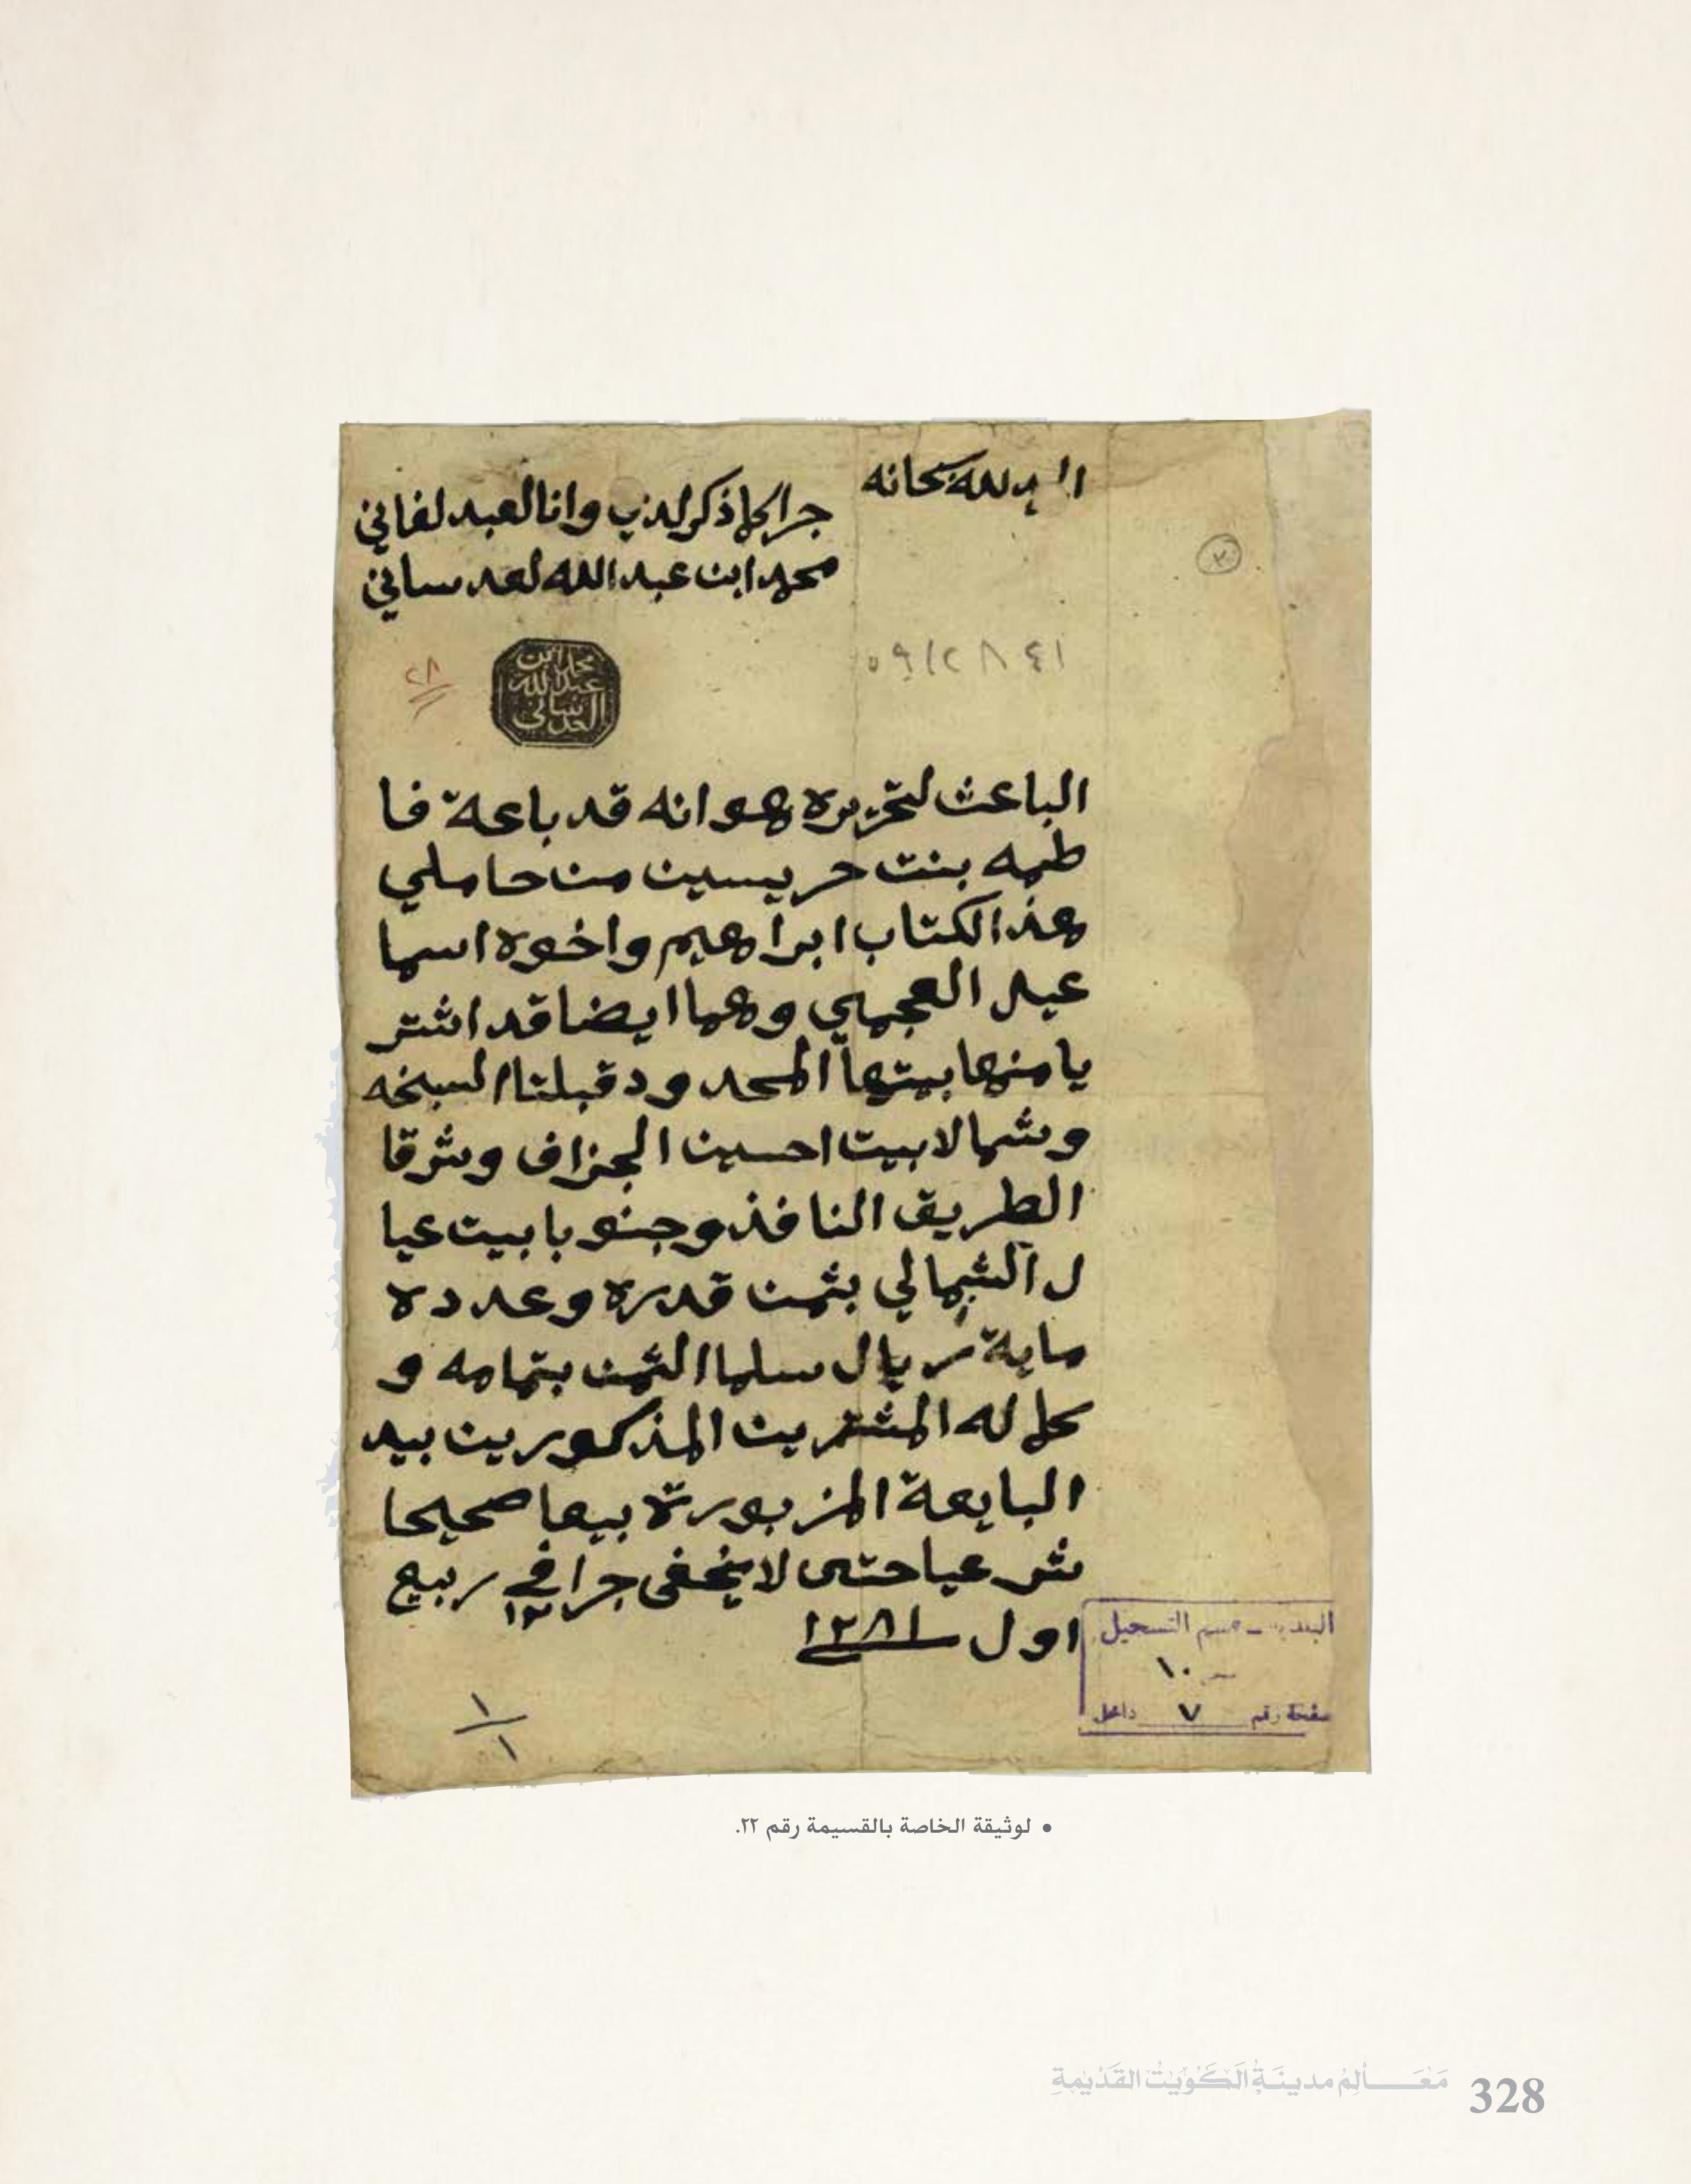 الحمد لله سبحانه
جرا كلما ذكر لدي وانا العبد لفاني
محمد ابن عبد الله لعدساني
٣٠
٢٨
محمد ابن
عبد الله
العدساني
الباعث لتحريره هو انه قد باعة فا
طمه بنت حريسين من حاملي
هذ الكتاب ابراهيم واخوه اسما
عيل العجمي وهما ايضا قد اشتر
يا منها بيتها المحدود قبلتا السبخه
وشمالا بيت احسين الجزاف وشرقا
الطريق النافذ وجنوبا بيت عيا
ل الشمالي بثمن قدره وعدده
ماية ريال سلما الثمن بتمامه و
كله المشترين المذكورين بيد
البايعة المزبورة بيعا صحيحا
شرعيا حتى لا يخفى جرا في ١٢ ربيع
اول ١٢٨١
البلدية - قسم التسجيل
١٠
صفحة رقم ٧ داخل
١
١
• لوثيقة الخاصة بالقسيمة رقم ٢٢.
مَعَالِمُ مدينَةُ الكُوَيْتُ القَدْيمةِ 328